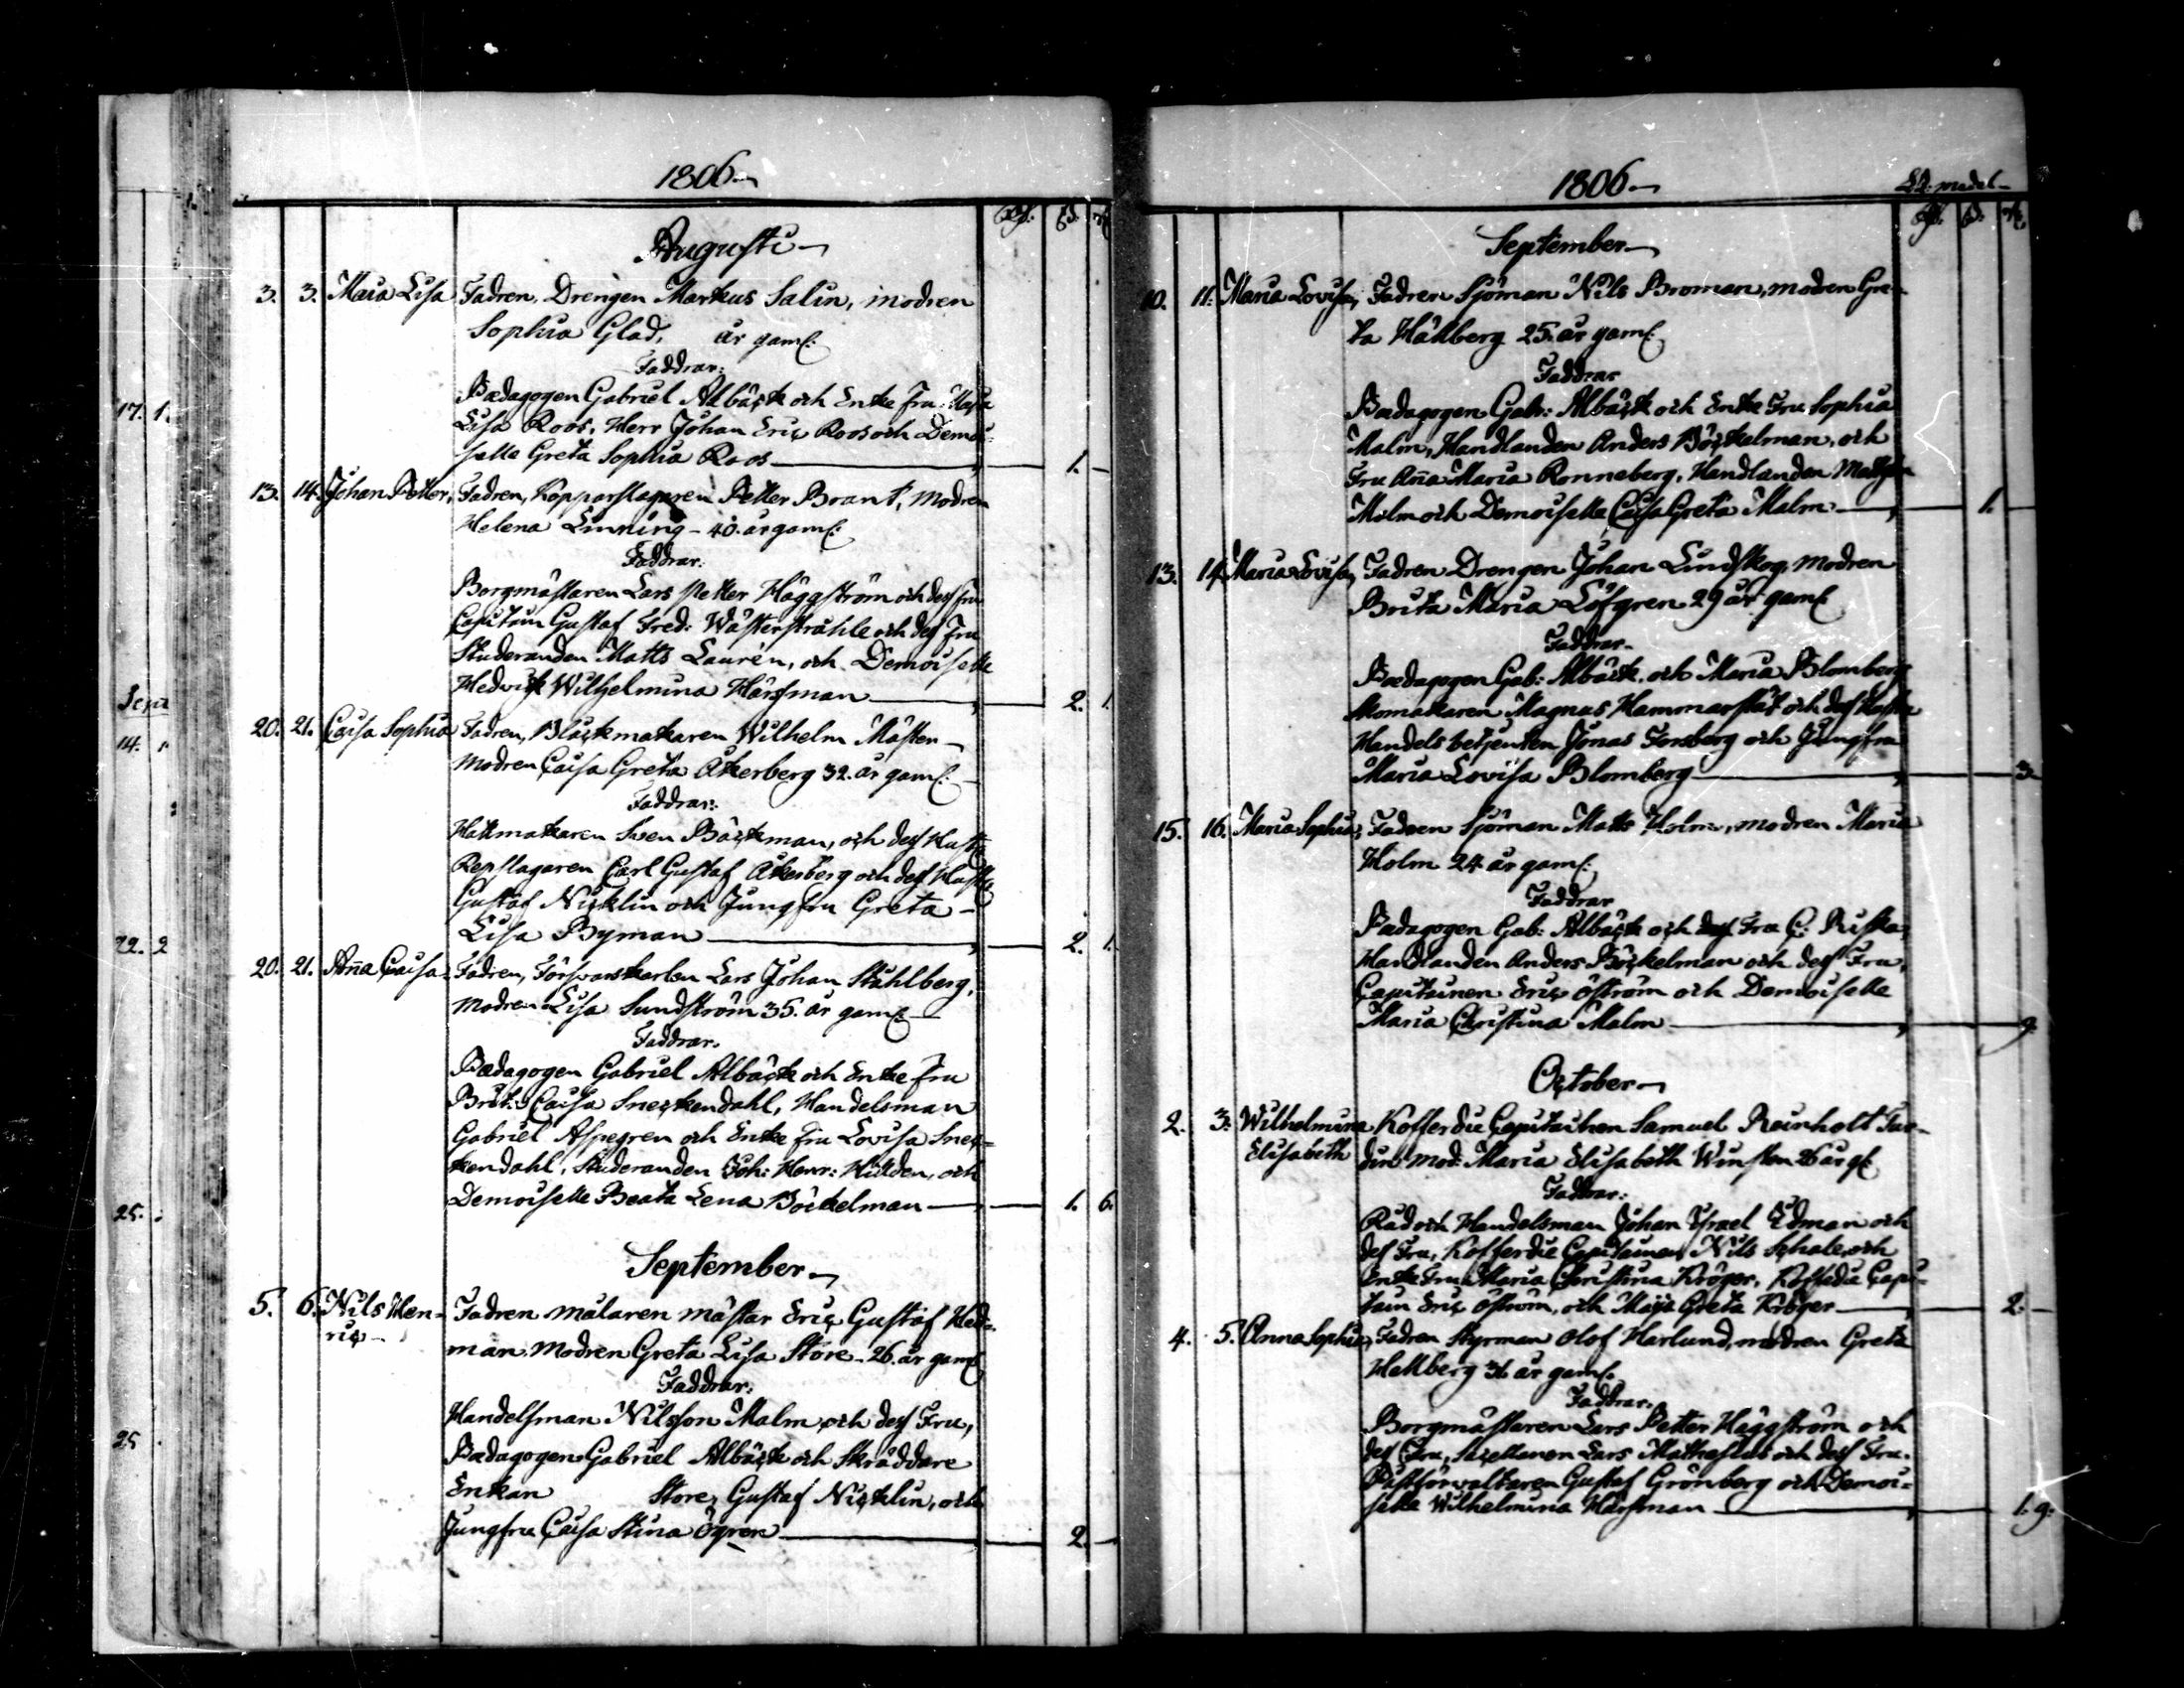 1806.
Augusti
3. 3. Maia Lisa Fadren, Drengen Markus Salin, modren
Sophia Glad, år gaml:
Faddrar:
Pædagogen Gabriel Albäck och Enke Fru Maja
Lisa Roos, Herr Johan Eric Roos och Demoi-
selle Greta Sophia Roos 1. –
13. 14. Johan Petter, Fadren, Kopparslagaren Petter Brant, Modren
Helena Linning – 40. år gaml:
Faddrar:
Borgmästaren Lars Petter Häggström och dess fru
Capitain Gustaf Fred: Wästerstråhle och dess Fru
Studeranden Matts Laurén, och Demoiselle
Hedvick Wilhelmina Harsman 2. 1.
20. 21. Caisa Sophia Fadren, Bläckmakaren Wilhelm Mästen
modren Caisa Greta Åkerberg 32. år gaml:
Faddrar:
Hattmakaren Sven Bäckman, och dess Hustr
Repslagaren Carl Gustaf Åkerberg och dess Hustr
Gustaf Nicklin och Jungfru Greta –
Lisa Byman 2. 1.
20. 21. Aña Caisa Fadren, Försvarskarlen Lars Johan Ståhlberg,
Modren Lisa Sundström 35. år gaml:
Faddrar.
Pædagogen Gabriel Albäck och Enke Fru
Brit: Caisa Sneckendahl, Handelsman
Gabriel Aspegren och Enke Fru Lovisa Snec=
kendahl, Studeranden Joh: Henr: Hulden, och
Demoiselle Beata Lena Böckelman 1. 6.
September
5. 6. Nils Hen= Fadren målaren mästar Eric Gustaf Hed=
ric – man. Modren Greta Lisa Store – 26. år gaml:
Faddrar:
Handelsman Nilsson Malm och dess Fru,
Pædagogen Gabriel Albäck och Skräddare
Enkan Store, Gustaf Nicklin, och
Jungfru Caisa Stina Ögren 2. –
1806.
September
10. 11. Maria Lovisa, Fadren Sjöman Nils Broman, modren Gre-
ta Hällberg 25. år gaml:
Faddrar
Pædagogen Gabr: Albäck och Enke Fru Sophia
Malm, Handlanden Anders Böckelman, och
Fru Aña Maria Ronneberg, Handlanden
Malm och Demoiselle Caisa Greta Malm 1. –
13. 14. Maria Lovisa, Fadren Drengen Johan Lindskog, modren
Brita Maria Löfgren 29 år gaml:
Faddrar –
Pædagogen Gab: Albäck och Maria Blomberg
Skomakaren Magnus Hammarstät och dess Hustru
Handelsbetjenten Jonas Forsberg och Jungfru
Maria Lovisa Blomberg 3.
15. 16. Maria Sophia, Fadren Sjöman Matts Holm, modren Maria
Holm 24 år gaml:
Faddrar
Pædagogen Gab: Albäck och Fru C: Riska,
Handlanden Anders Böckelman och dess Fru,
Capitainen Eric Öström och Demoiselle
Maria Christina Malm 9.
October
2. 3. Wilhelmina Kofferdie Capitainen Samuel Reinholt
Elisabeth mod: Maria Elisabeth Winsten 26 år gl:
Faddrar:
Råd och Handelsman Johan Israel Edman och
dess Fru, Kofferdie Capitainen Nils Schale, och
Enke Fru Maria Christina Kröger, Kofferdie Capi-
tain Eric Öström, och Maja Greta Kröger 2. –
4. 5. Anna Sophia, Fadren Styrman Olof Harlund, modren Greta
Hallberg 36 år gaml:
Faddrar.
Borgmästaren Lars Petter Häggström och
dess Fru, Lars och dess Fru.
Gustaf Grönberg och Demoi-
selle Wilhelmina Harsman 1. 9.